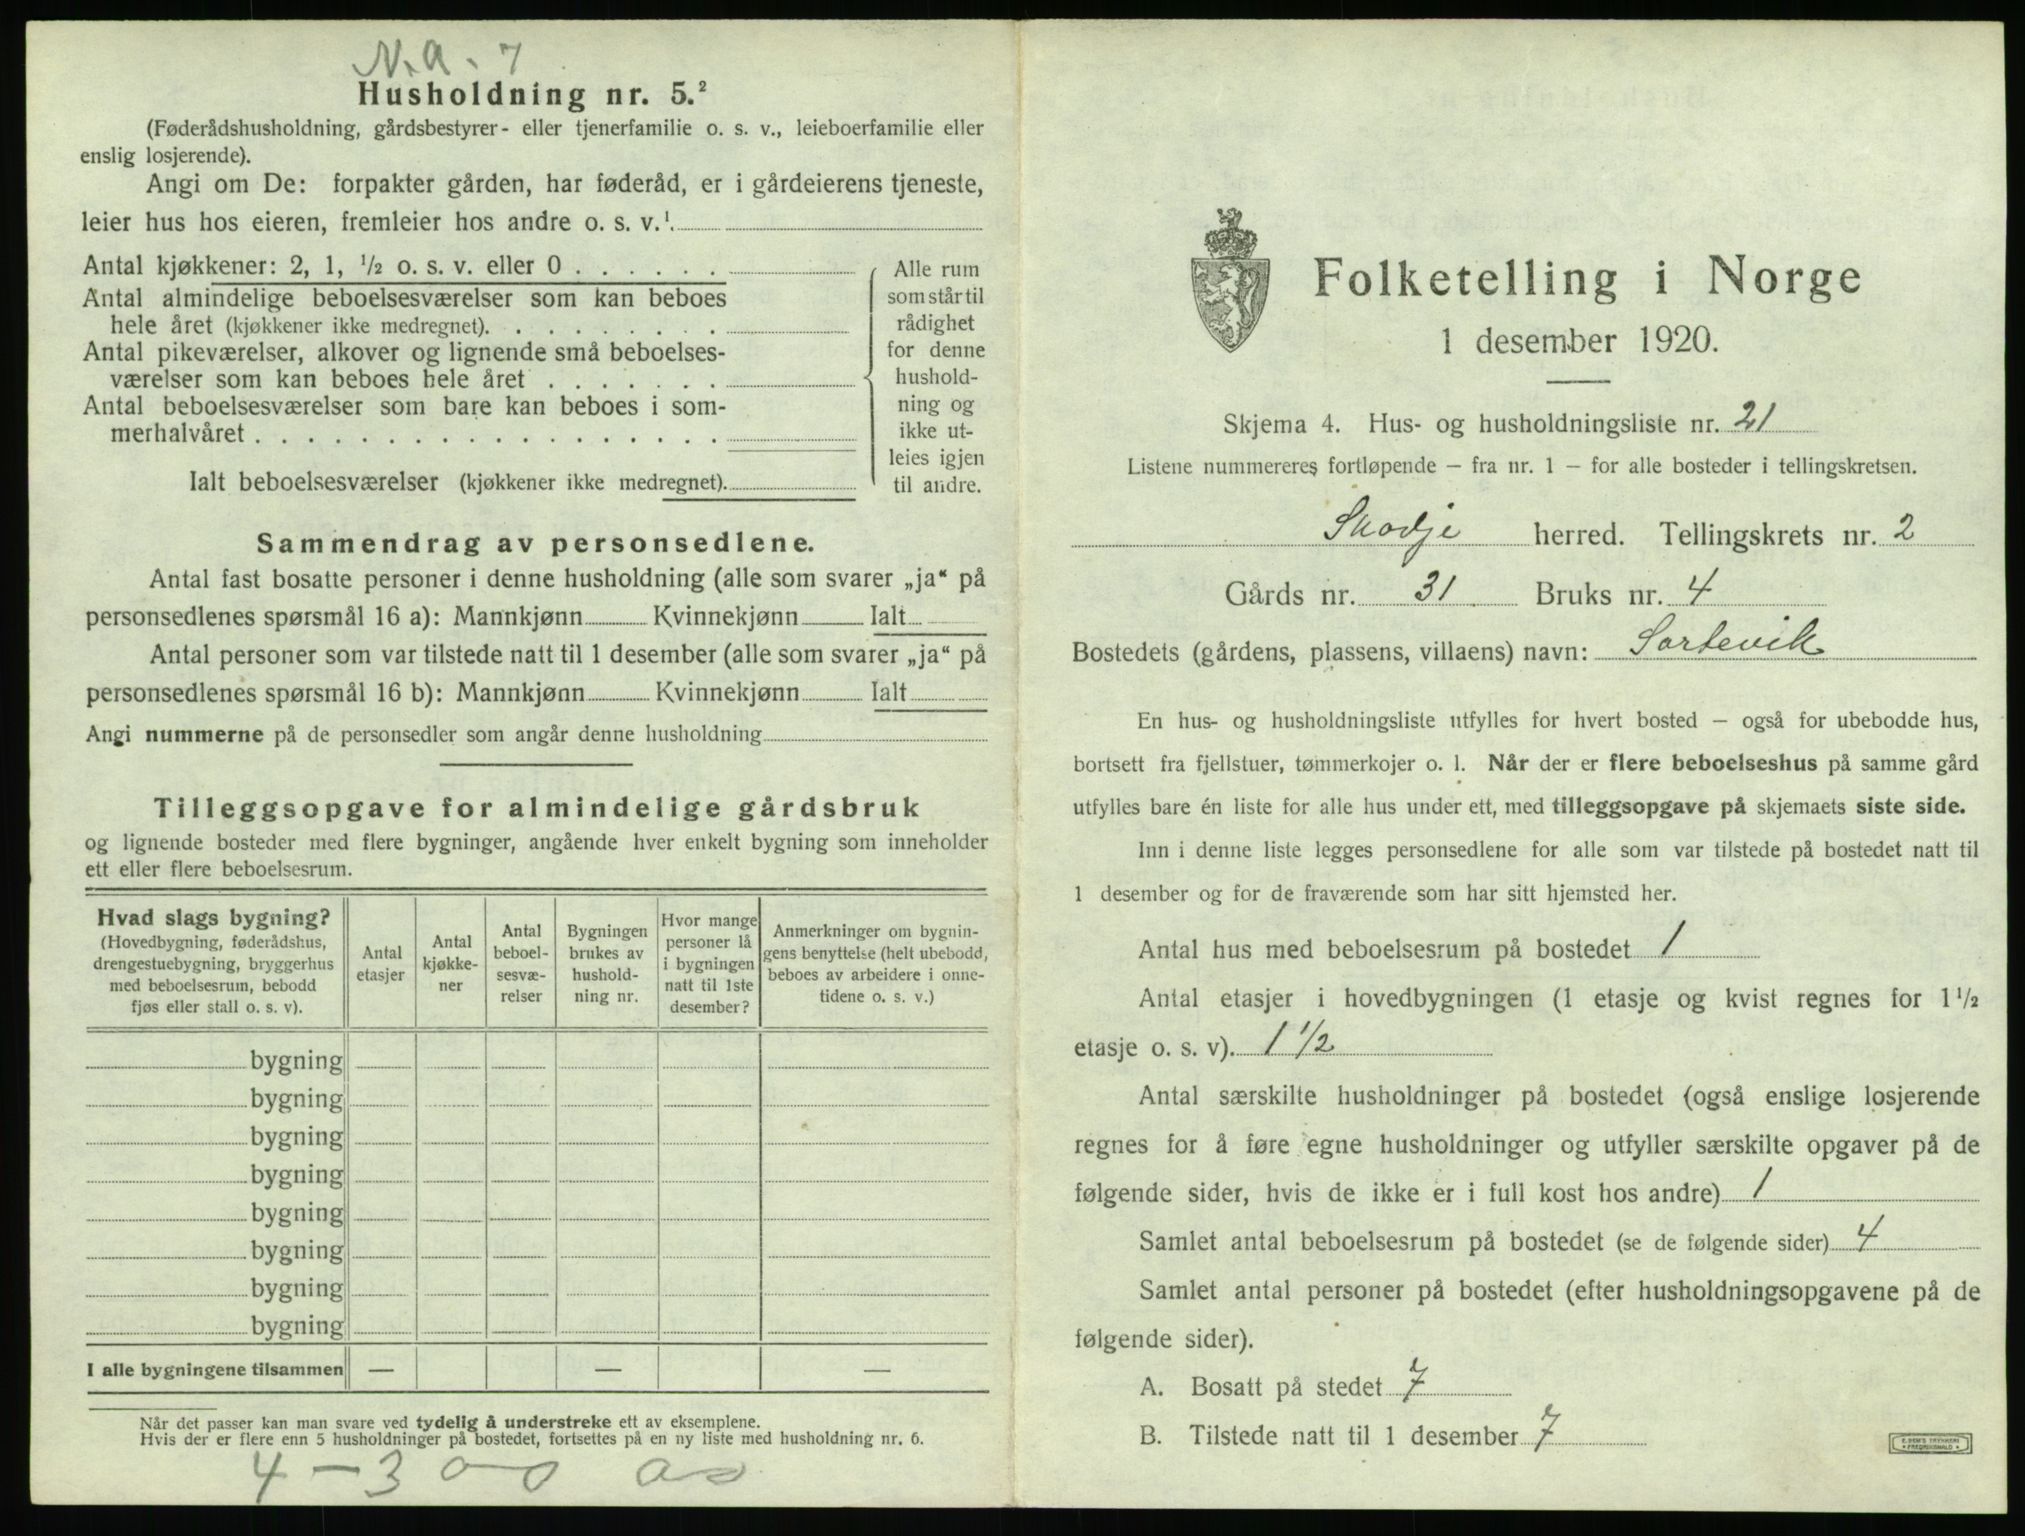 N.A. 7
Husholdning nr. 5.²
(Føderådshusholdning, gårdsbestyrer- eller tjenerfamilie o. s. v., leieboerfamilie eller
enslig losjerende).
Angi om De: forpakter gården, har føderåd, er i gårdeierens tjeneste,
leier hus hos eieren, fremleier hos andre o. s. v.¹
Antal kjøkkener: 2, 1, ½ o. s. v. eller 0 . . . . . .
Antal almindelige beboelsesværelser som kan beboes
hele året (kjøkkener ikke medregnet). . . . . . . . .
Antal pikeværelser, alkover og lignende små beboelses-
værelser som kan beboes hele året . . . . . . .
Antal beboelsesværelser som bare kan beboes i som-
merhalvåret . . . . . . . . . . . . . . . . . .
Ialt beboelsesværelser (kjøkkener ikke medregnet).
Alle rum
som står til
rådighet
for denne
hushold-
ning og
ikke ut-
leies igjen
til andre.
Sammendrag av personsedlene.
Antal fast bosatte personer i denne husholdning (alle som svarer „ja“ på
personsedlenes spørsmål 16 a): Mannkjønn Kvinnekjønn Ialt
Antal personer som var tilstede natt til 1 desember (alle som svarer „ja“ på
personsedlenes spørsmål 16 b): Mannkjønn Kvinnekjønn Ialt
Angi nummerne på de personsedler som angår denne husholdning
Tilleggsopgave for almindelige gårdsbruk
og lignende bosteder med flere bygninger, angående hver enkelt bygning som inneholder
ett eller flere beboelsesrum.
Hvad slags bygning?
(Hovedbygning, føderådshus,
drengestuebygning, bryggerhus
med beboelsesrum, bebodd
fjøs eller stall o. s. v).
Antal
etasjer
Antal
kjøkke-
ner
Antal
beboel-
sesvæ-
relser
Bygningen
brukes av
hushold-
ning nr.
Hvor mange
personer lå
i bygningen
natt til 1ste
desember?
Anmerkninger om bygnin-
gens benyttelse (helt ubebodd,
beboes av arbeidere i onne-
tidene o. s. v.)
bygning
bygning
bygning
bygning
bygning
bygning
bygning
bygning
I alle bygningene tilsammen — — —
Når det passer kan man svare ved tydelig å understreke ett av eksemplene.
Hvis der er flere enn 5 husholdninger på bostedet, fortsettes på en ny liste med husholdning nr. 6.
4 - 3
Folketelling i Norge
1 desember 1920.
Skjema 4. Hus- og husholdningsliste nr. 21
Listene nummereres fortløpende – fra nr. 1 – for alle bosteder i tellingskretsen.
Skodje herred. Tellingskrets nr. 2
Gårds nr. 31 Bruks nr. 4
Bostedets (gårdens, plassens, villaens) navn: Sortevik
En hus- og husholdningsliste utfylles for hvert bosted – også for ubebodde hus,
bortsett fra fjellstuer, tømmerkojer o. l. Når der er flere beboelseshus på samme gård
utfylles bare én liste for alle hus under ett, med tilleggsopgave på skjemaets siste side.
Inn i denne liste legges personsedlene for alle som var tilstede på bostedet natt til
1 desember og for de fraværende som har sitt hjemsted her.
Antal hus med beboelsesrum på bostedet 1
Antal etasjer i hovedbygningen (1 etasje og kvist regnes for 1½
etasje o. s. v). 1 ½
Antal særskilte husholdninger på bostedet (også enslige losjerende
regnes for å føre egne husholdninger og utfyller særskilte opgaver på de
følgende sider, hvis de ikke er i full kost hos andre) 1
Samlet antal beboelsesrum på bostedet (se de følgende sider) 4
Samlet antal personer på bostedet (efter husholdningsopgavene på de
følgende sider).
A. Bosatt på stedet 7
B. Tilstede natt til 1 desember 7